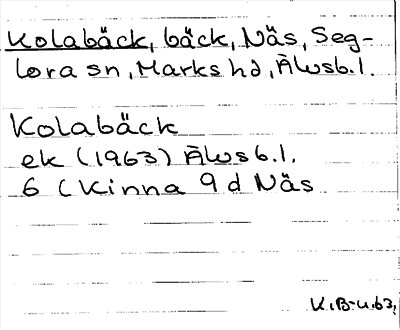 Kolabäck, bäck, Näs, Seg-
lora sn, Marks hd, Älvsb.l.
Kolabäck
ek (1963) Älvsb.l.
6 (Kinna 9d Näs
K.B-u.63,